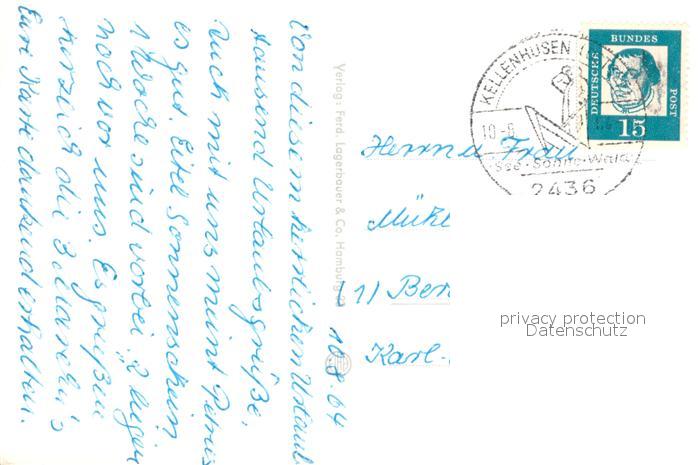 10.8.64
Von diesem herrlichen Urlaub
tausend Urlaubsgrüße,
Auch mit uns meint Petrus
es gut. Eitel Sonnenschein
1 Woche sind vorbei, 2 liegen
noch vor uns. Es grüßen
herzlich die 3
Eure Karte dankend erhalten.
Verlag: Ferd. Lagerbauer & Co. Hamburg
Herrn u Frau
(1) Ber
Karl-
KELLENHUSEN
10-8
See-Sonne-Wald
2436
DEUTSCHE
BUNDES
POST
15
privacy protection
Datenschutz